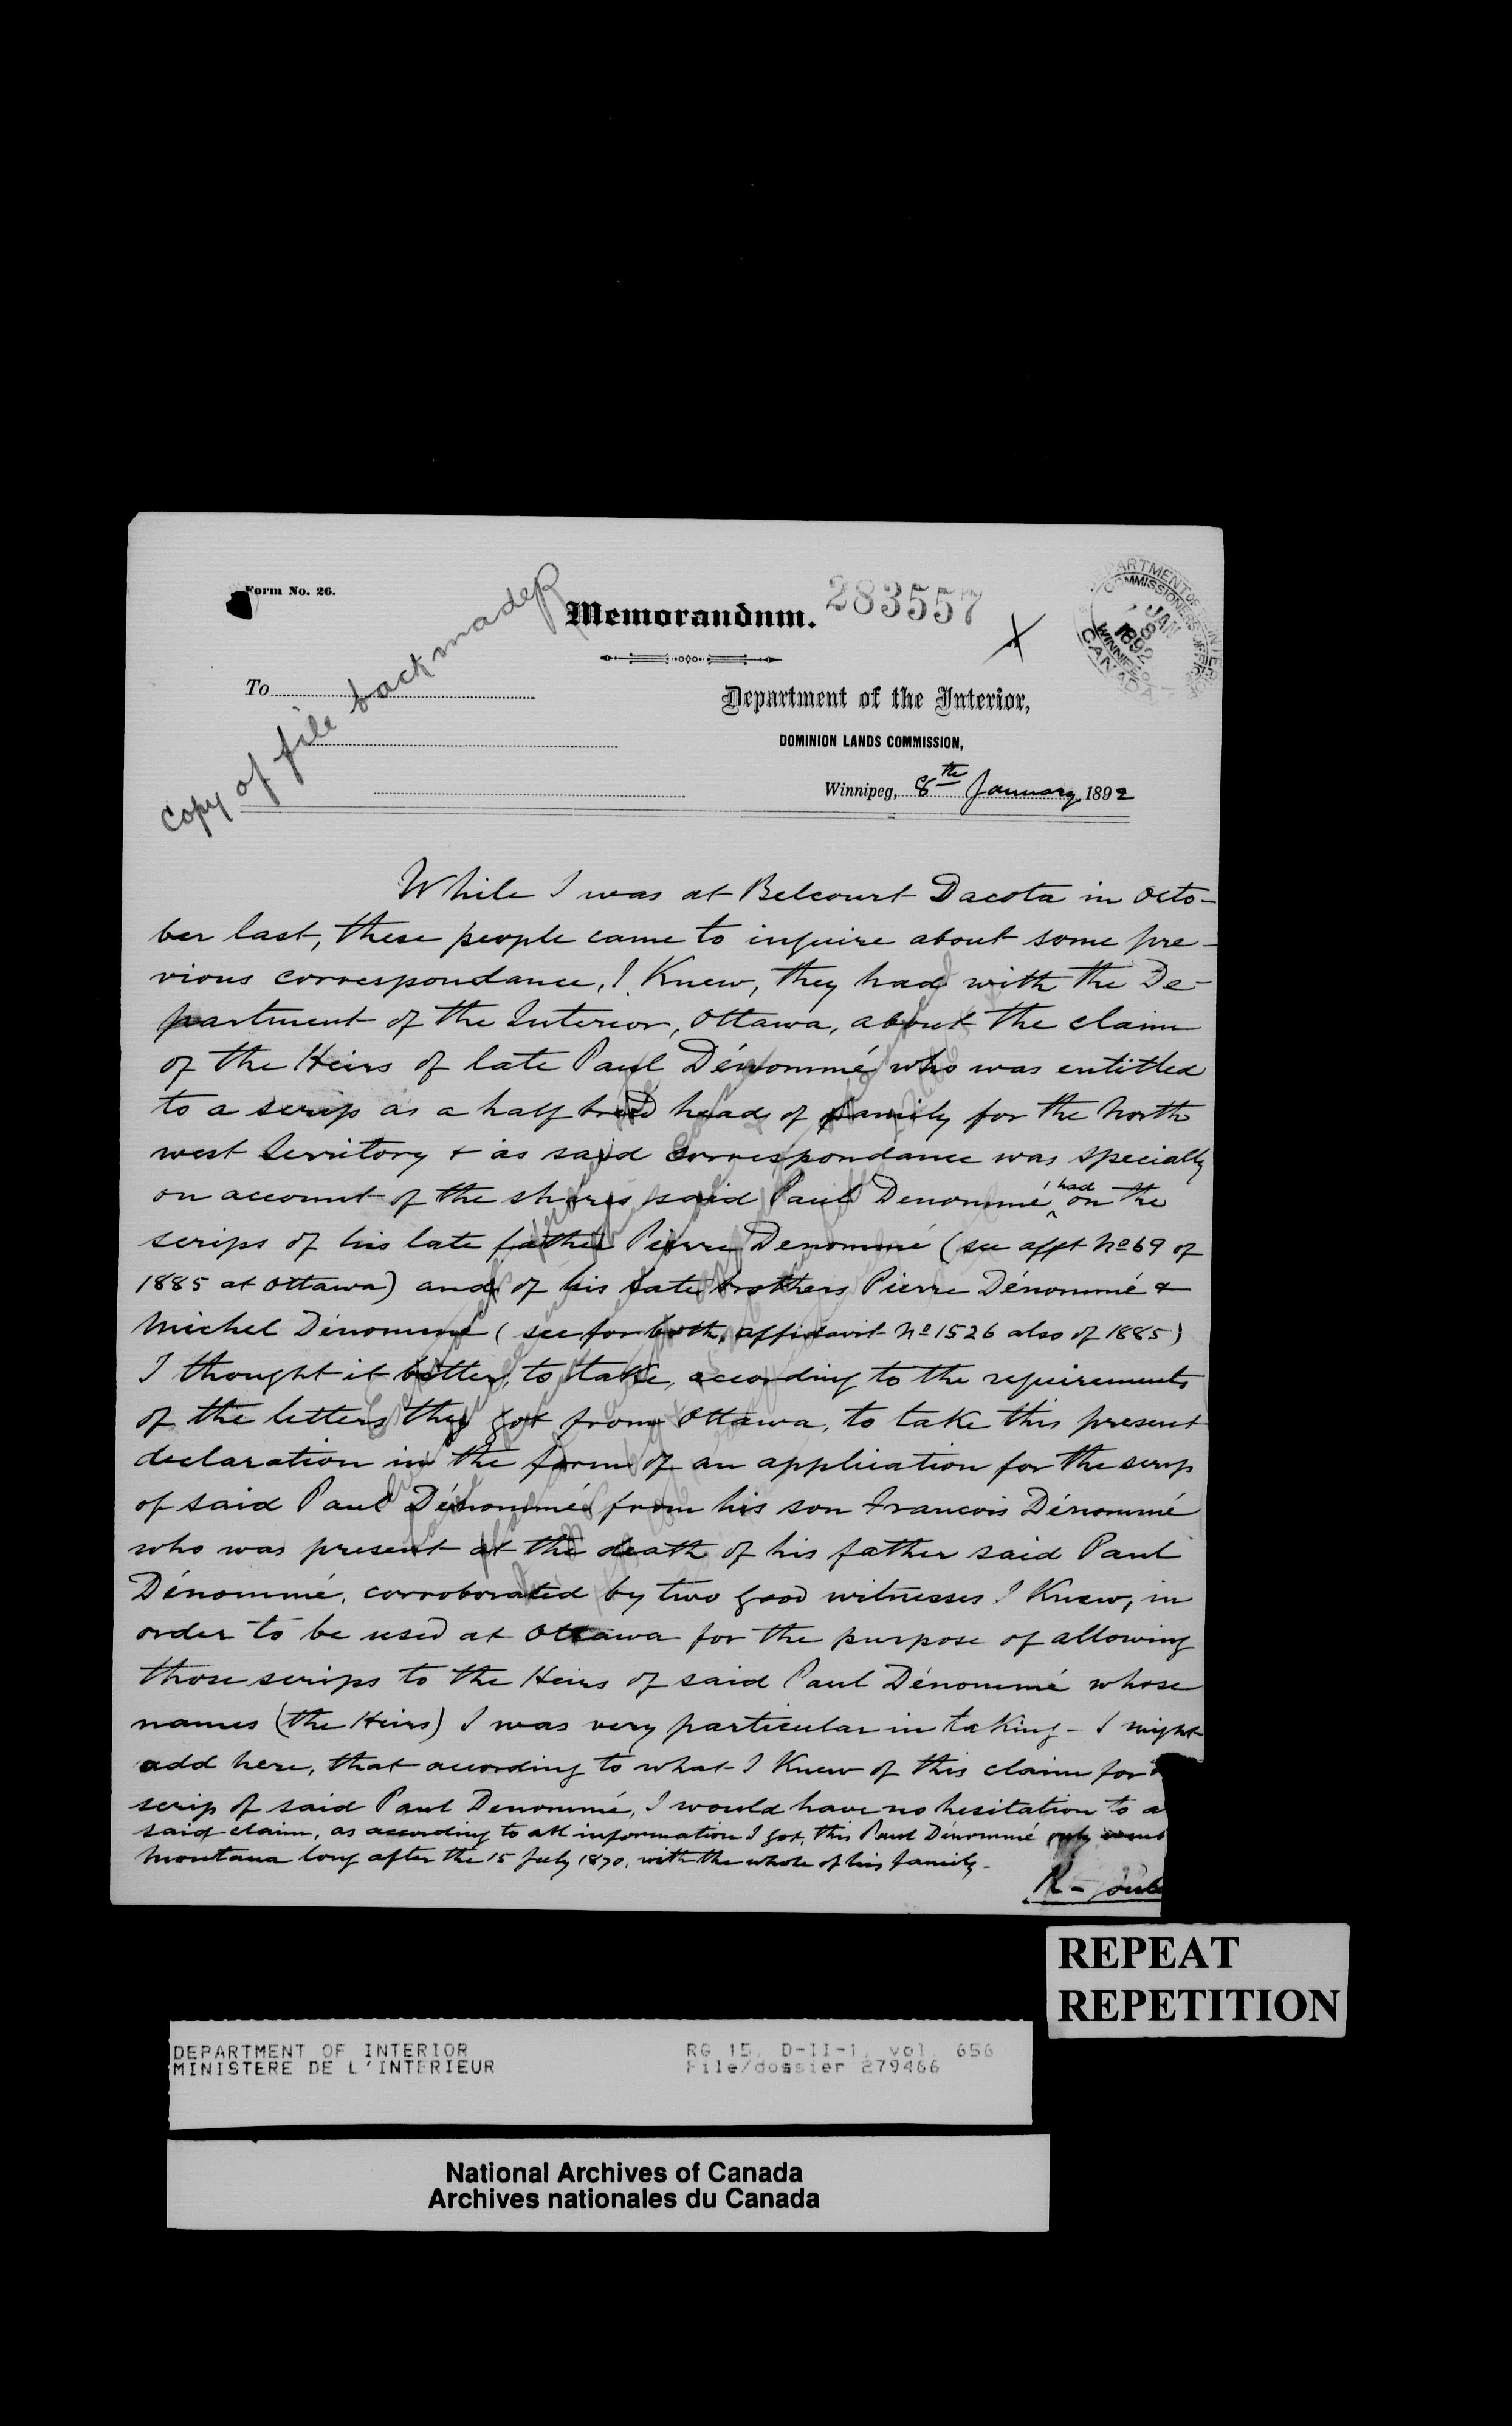 Form No. 26.
Copy of file back made
Memorandum.
283557
X
DEPARTMENT OF INTERIOR
COMMISSIONERS OFFICE
JAN
8
1892
WINNIPEG
CANADA
To
Department of the Interior,
DOMINION LANDS COMMISSION,
Winnipeg, 8th January 1892
While I was at Belcourt Dacota in Octo-
ber last, these people came to inquire about some pre-
vious correspondance, I Knew, they had with the De-
partment of the Interior, Ottawa, about the claim
of the Heirs of late Paul Dénommé who was entitled
to a scrip as a half breed head of family for the North
west Territory & as said correspondance was specially
on account of the shares said Paul Denommé had on the
scrips of his late father Pierre Denommé (see afft No 69 of
1885 at Ottawa) and of his late brothers Pierre Dénommé &
Michel Dénommé (see for both, affidavit No 1526 also of 1885)
I thought it better, to take, according to the requirements
of the letters they got from Ottawa, to take this present
declaration in the form of an application for the scrip
of said Paul Dénommé from his son Francois Dénommé
who was present at the death of his father said Paul
Dénommé, corroborated by two good witnesses I Knew, in
order to be used at Ottawa for the purpose of allowing
those scrips to the Heirs of said Paul Dénommé whose
names (the Heirs) I was very particular in taking - I might
add here, that according to what I Knew of this claim for
scrip of said Paul Denommé, I would have no hesitation to a
said claim, as according to all information I got, this Paul Dénommé only
Montana long after the 15 July 1870, with the whole of his family -
R-
REPEAT
REPETITION
DEPARTMENT OF INTERIOR
MINISTERE DE L'INTERIEUR
RG 15, D-II-1, vol. 656
File/dossier 279466
National Archives of Canada
Archives nationales du Canada